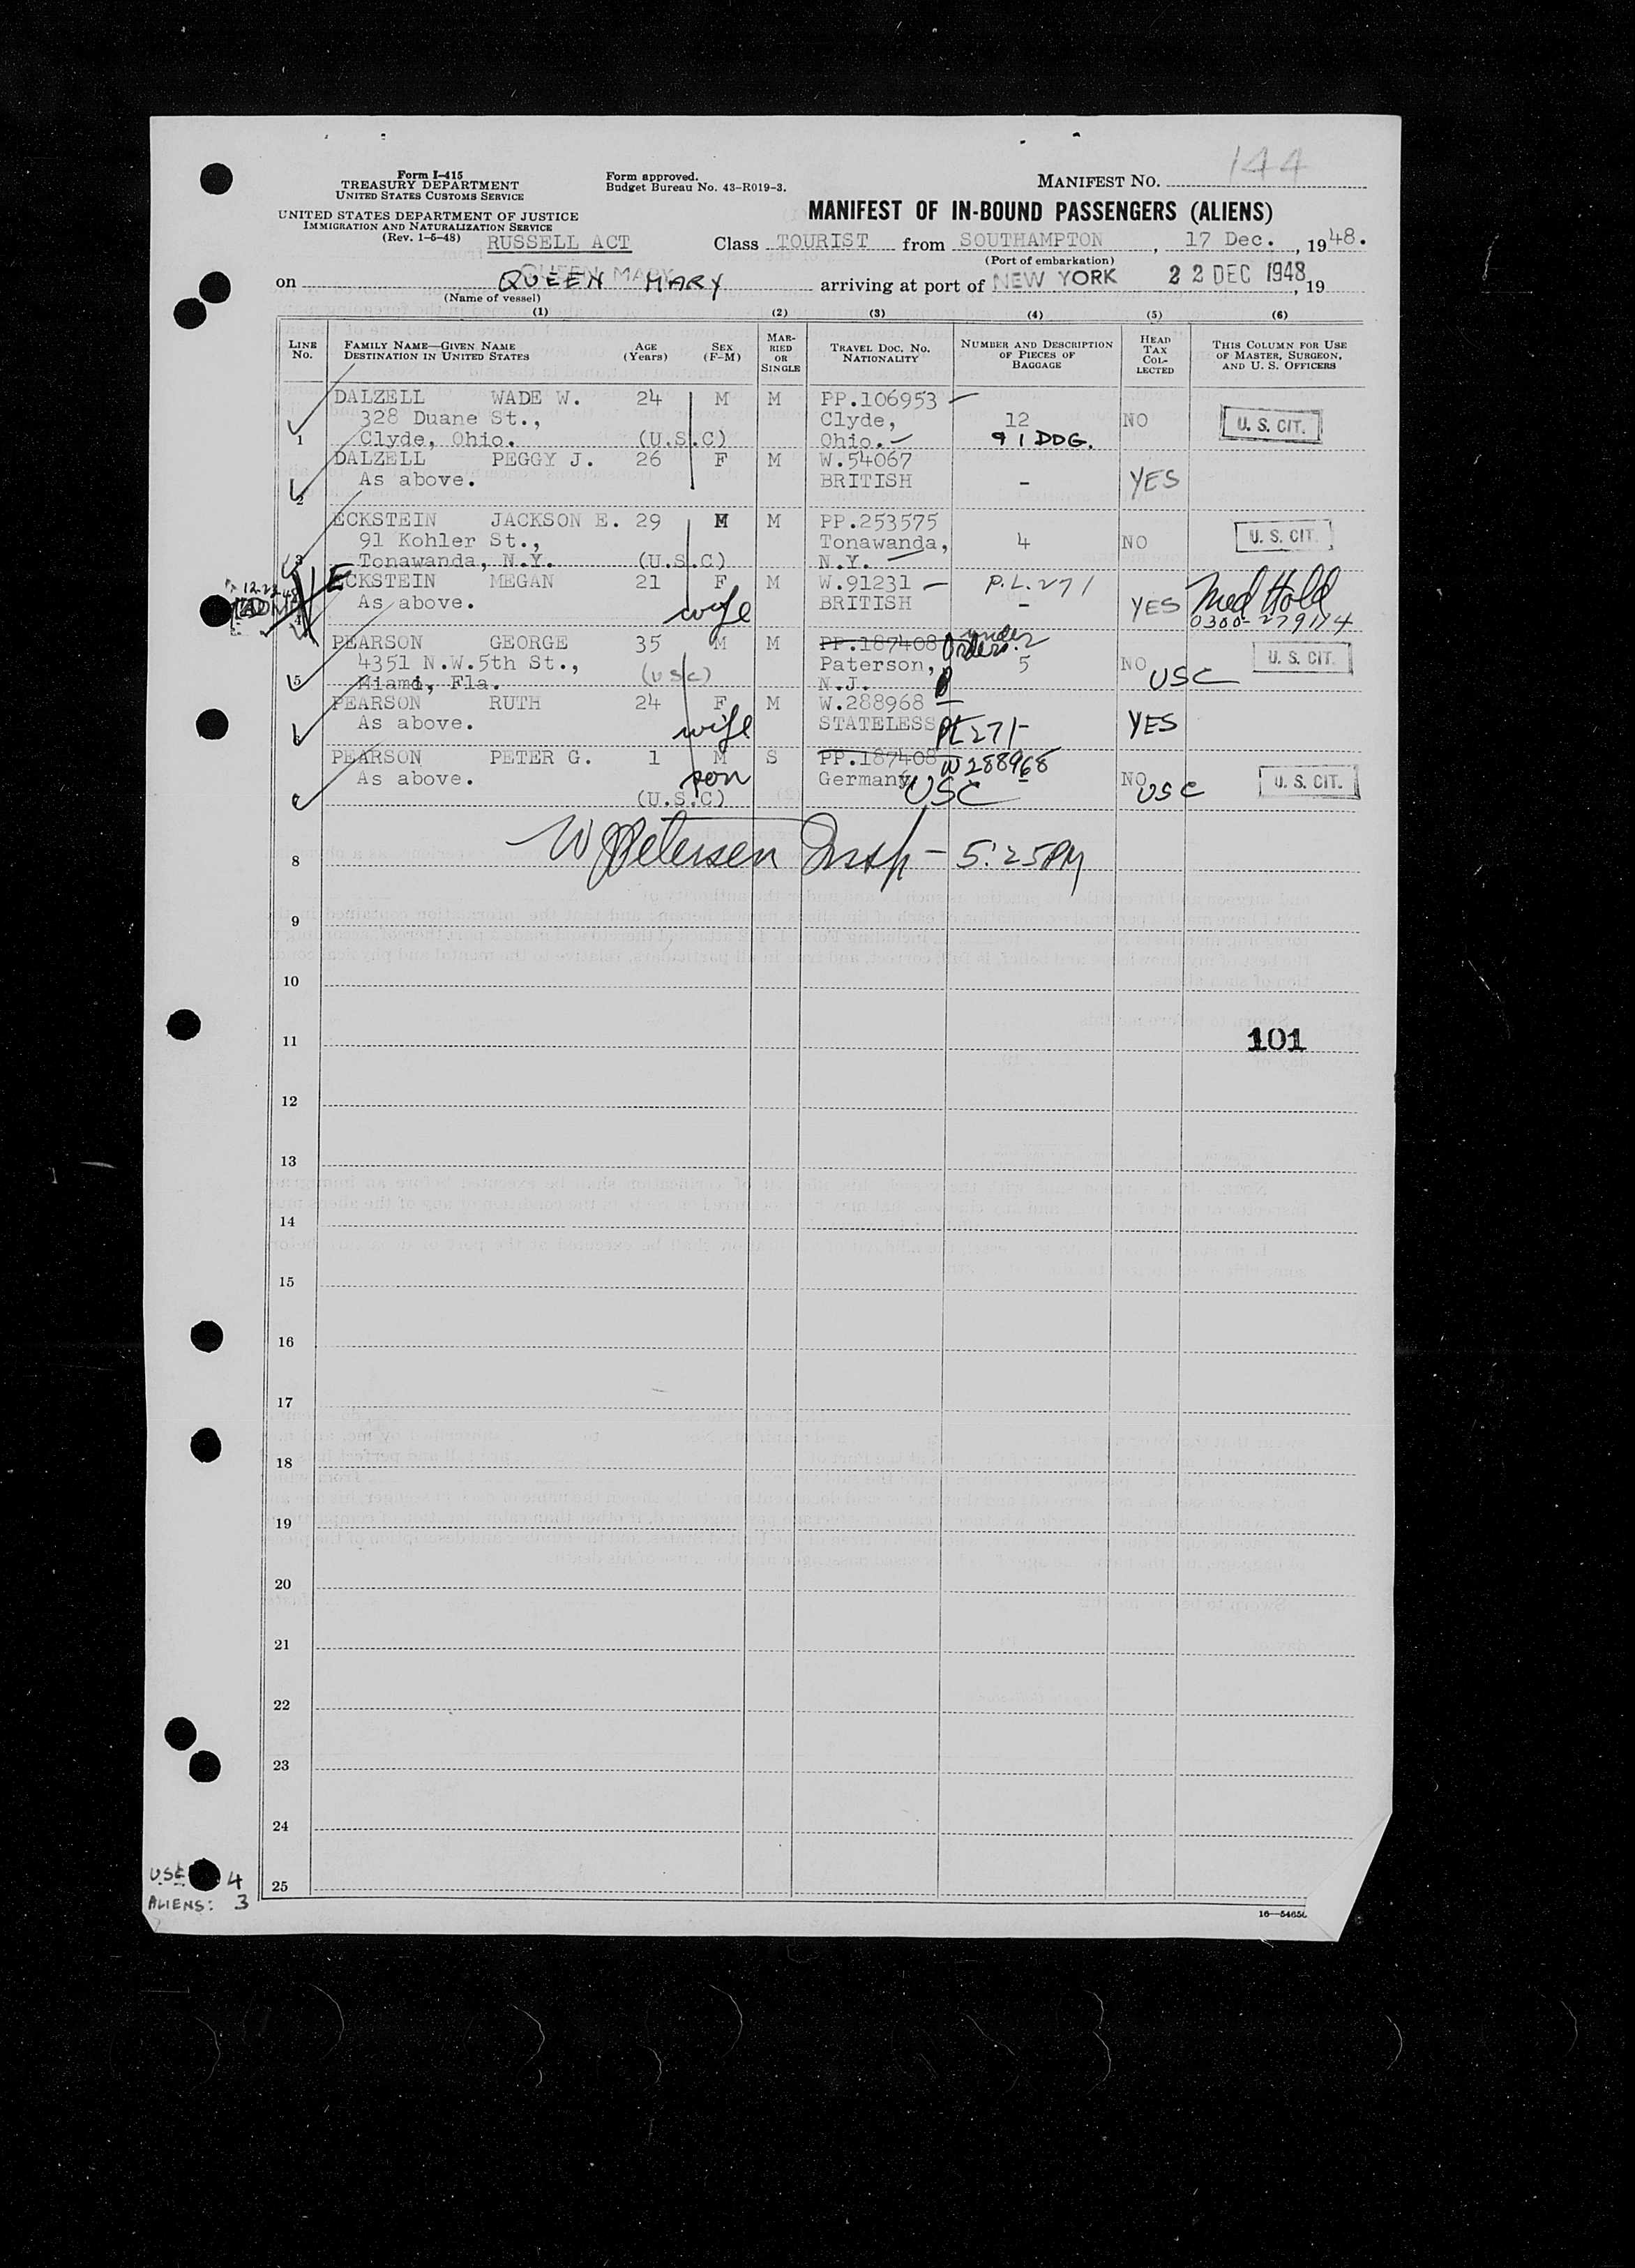 144
Form I-415
TREASURY DEPARTMENT
UNITED STATES CUSTOMS SERVICE
Form approved.
Budget Bureau No. 43-R019-3.
MANIFEST NO.
UNITED STATES DEPARTMENT OF JUSTICE
IMMIGRATION AND NATURALIZATION SERVICE
(Rev. 1-5-48)
RUSSELL ACT
MANIFEST OF IN-BOUND PASSENGERS (ALIENS)
Class TOURIST from SOUTHAMPTON, 17 Dec., 1948.
(Port of embarkation)
QUEEN MARY
on QUEEN MARY arriving at port of NEW YORK 22 DEC 1948, 19
(Name of vessel)
(1) (2) (3) (4) (5) (6)
LINE No. FAMILY NAME—GIVEN NAME DESTINATION IN UNITED STATES AGE (Years) SEX (F-M) MARRIED OR SINGLE TRAVEL DOC. NO. NATIONALITY NUMBER AND DESCRIPTION OF PIECES OF BAGGAGE HEAD TAX COLLECTED THIS COLUMN FOR USE OF MASTER, SURGEON, AND U. S. OFFICERS
DALZELL WADE W. 24 M M PP.106953
328 Duane St., Clyde, 12 NO U. S. CIT.
1 Clyde, Ohio. (U.S.C) Ohio. 9 1 DOG.
DALZELL PEGGY J. 26 F M W.54067
2 As above. BRITISH - YES
ECKSTEIN JACKSON E. 29 M M PP.253575
91 Kohler St., Tonawanda, 4 NO U. S. CIT.
3 Tonawanda, N.Y. (U.S.C) N.Y.
12-22-48 ECKSTEIN MEGAN 21 F M W.91231 - P.L.271
4 As above. wife BRITISH - YES Med Hold
0300-279114
PEARSON GEORGE 35 M M PP.187408 under Orders.
4351 N.W.5th St., (USC) Paterson, 5 NO USC U. S. CIT.
5 Miami, Fla. N.J.
PEARSON RUTH 24 F M W.288968
6 As above. wife STATELESS PL 271- YES
PEARSON PETER G. 1 M S PP.187408 W288968
As above. son Germany USC NO USC U. S. CIT.
(U.S.C)
8 W Petersen Insp - 5:25PM
9
10
11 101
12
13
14
15
16
17
18
19
20
21
22
23
24
USC 4
25
ALIENS: 3